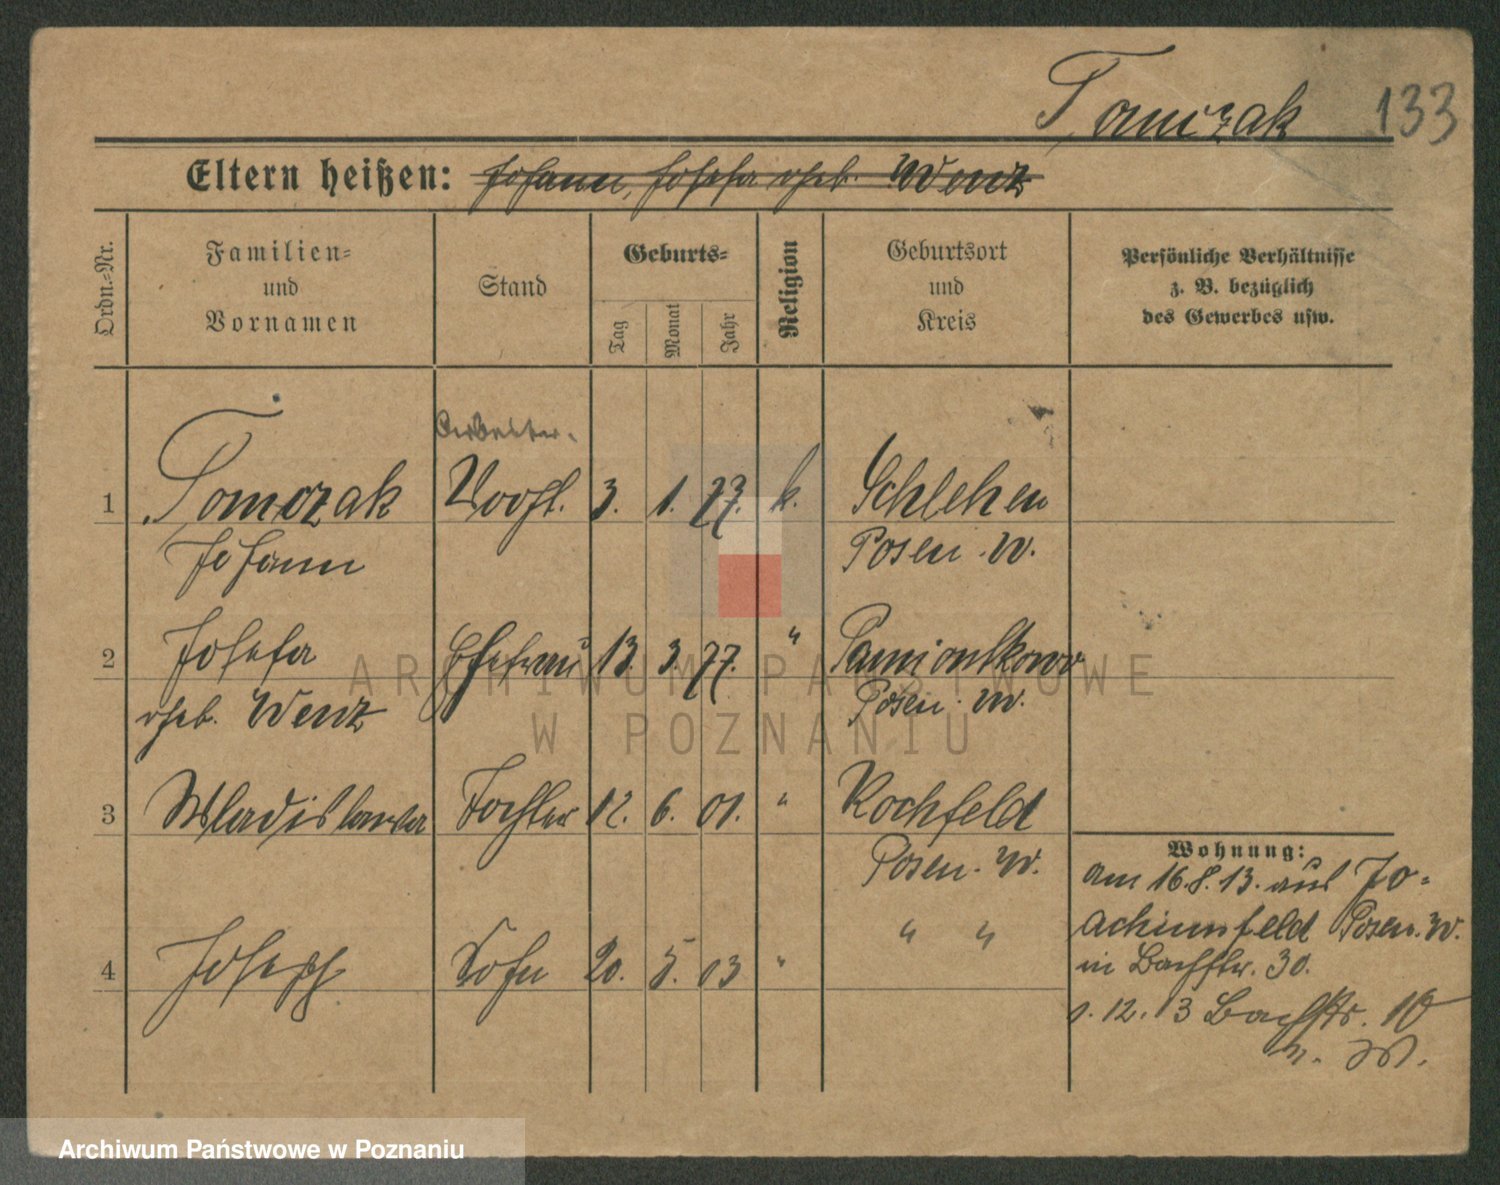 Tomczak 133
Eltern heißen: Johann, Josefa geb. Wenz
Ordn.=Nr.
Familien=
und
Vornamen
Stand
Geburts=
Tag
Monat
Jahr
Religion
Geburtsort
und
Kreis
Persönliche Verhältnisse
z. B. bezüglich
des Gewerbes usw.
Arbeiter.
1 Tomczak Vogt. 3. 1. 77. k. Schlehen
Johann Posen. W.
2 Josefa Ehefrau 13. 3. 77. " Pamiontkowo
geb. Wenz Posen. W.
3 Wladislawa Tochter 12. 6. 01. " Kochfeld
Posen. W.
4 Josef Sohn 20. 5. 03 " " "
Wohnung:
am 16.8.13. aus Jo=
achimsfeld Posen. W.
in Bachstr. 30.
12. 13 Bachstr. 10
ARCHIWUM PAŃSTWOWE
W POZNANIU
Archiwum Państwowe w Poznaniu